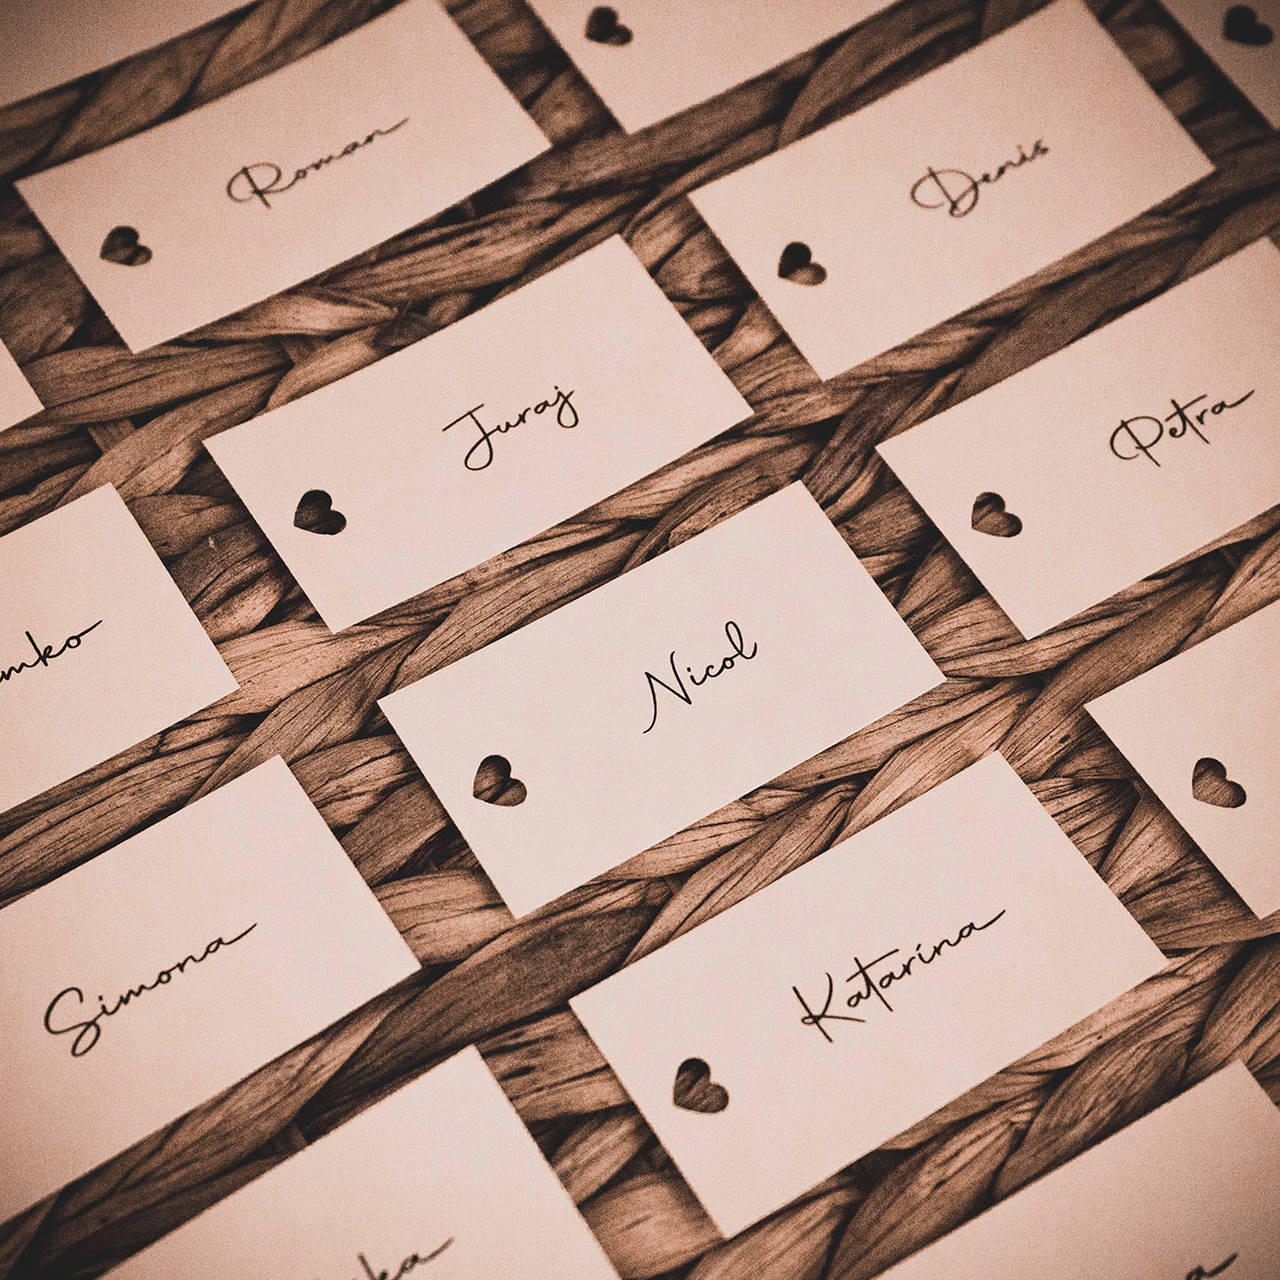 Roman
Denis
Juraj
Petra
mko
Nicol
Simona
Katarina
ka
a